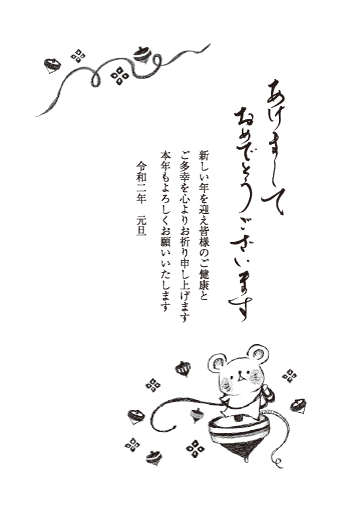 あけまして
おめでとうございます
新しい年を迎え皆様のご健康と
ご多幸を心よりお祈り申し上げます
本年もよろしくお願いいたします
令和二年　元旦